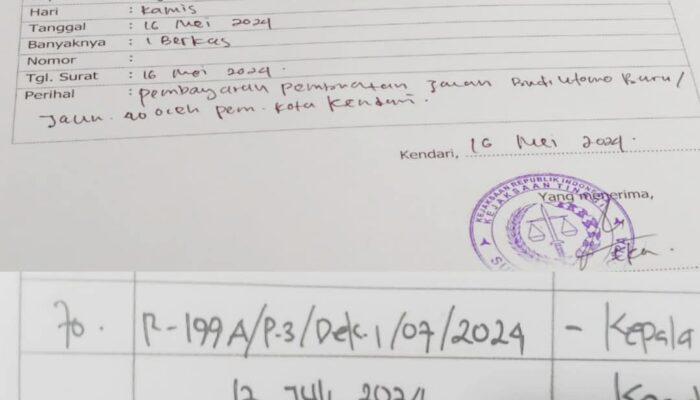 Hari : Kamis
Tanggal : 16 Mei 2024
Banyaknya : 1 Berkas
Nomor :
Tgl. Surat : 16 Mei 2024.
Perihal : pembayaran pembuatan Jalan Budi Utomo Baru/
40 oleh pem. Kota Kendari.
Kendari, 16 Mei 2024.
KEJAKSAAN REPUBLIK INDONESIA
KEJAKSAAN TINGGI
Yang menerima,
Eka
70. R-199A/P.3/Dek.1/07/2024 - Kepala
12 Juli 2024